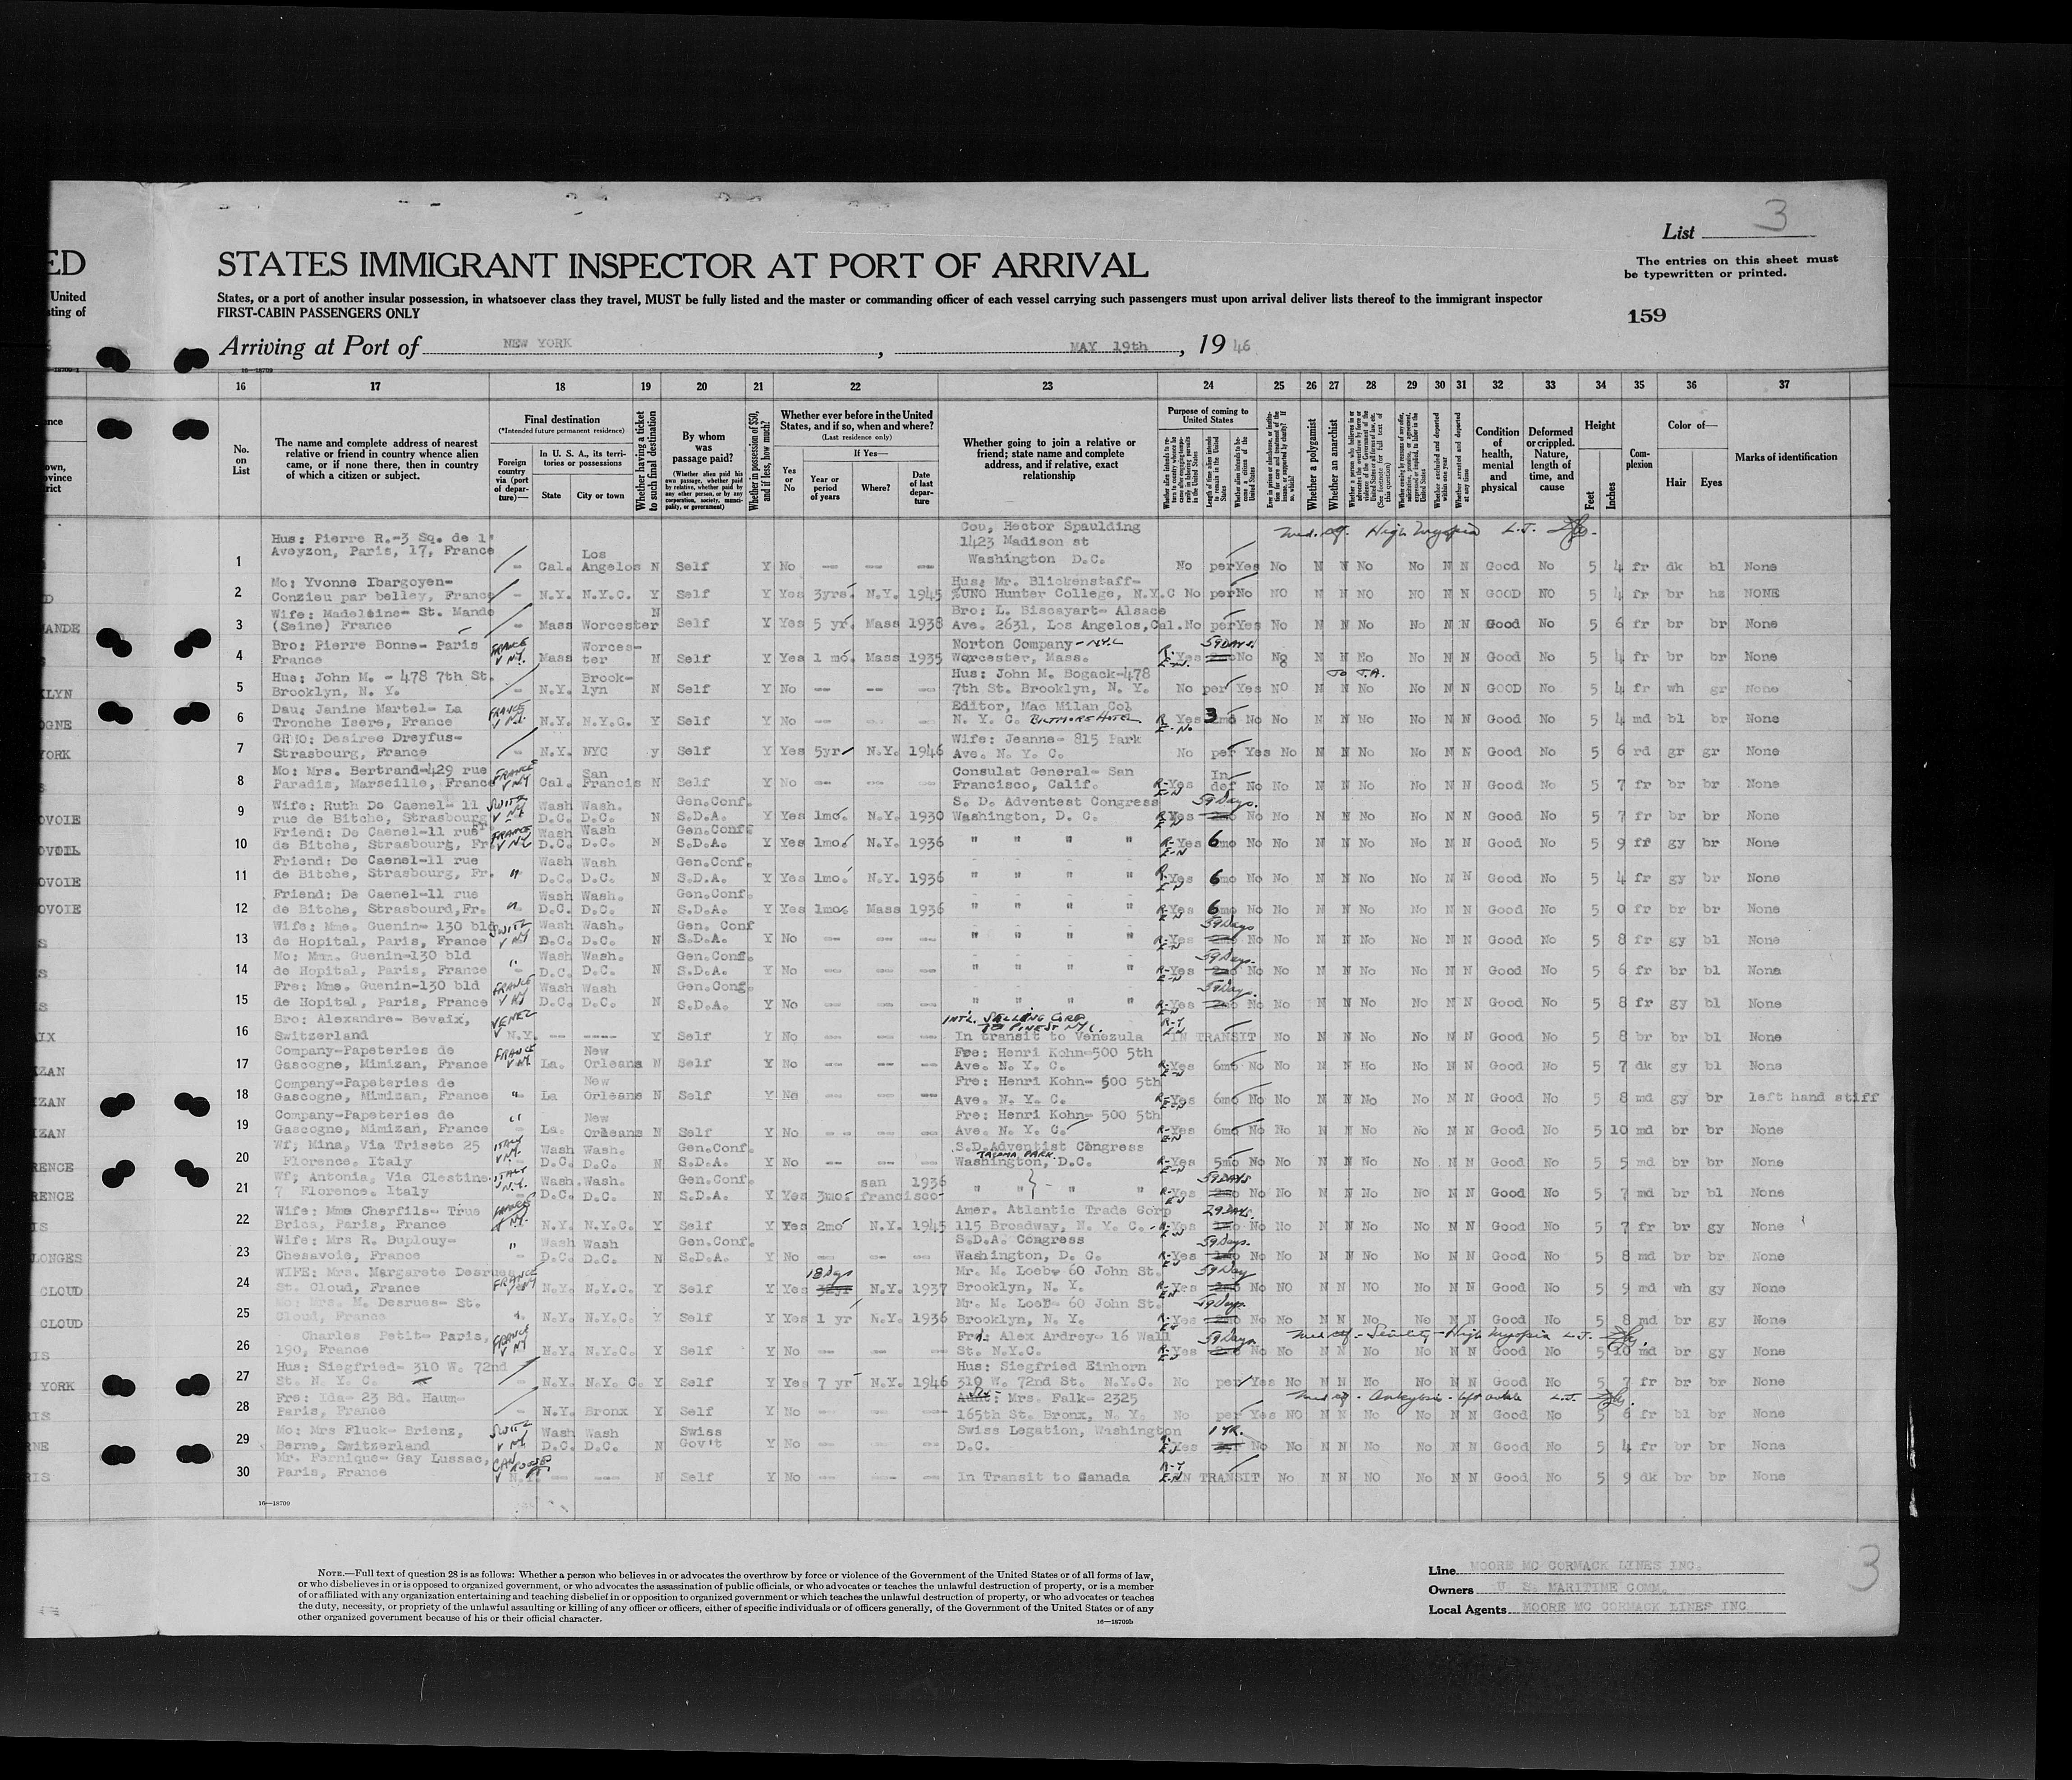 List 3
The entries on this sheet must
be typewritten or printed.
ED
STATES IMMIGRANT INSPECTOR AT PORT OF ARRIVAL
United
States, or a port of another insular possession, in whatsoever class they travel, MUST be fully listed and the master or commanding officer of each vessel carrying such passengers must upon arrival deliver lists thereof to the immigrant inspector
FIRST-CABIN PASSENGERS ONLY
159
Arriving at Port of NEW YORK, MAY 19th, 1946
16—18709
16 17 18 19 20 21 22 23 24 25 26 27 28 29 30 31 32 33 34 35 36 37
No. on List
The name and complete address of nearest
relative or friend in country whence alien
came, or if none there, then in country
of which a citizen or subject.
Final destination
(*Intended future permanent residence)
Foreign country via (port of departure)—
In U. S. A., its territories or possessions
State
City or town
Whether having a ticket to such final destination
By whom was passage paid?
(Whether alien paid his own passage, whether paid by relative, whether paid by any other person, or by any corporation, society, municipality, or government)
Whether in possession of $50, and if less, how much?
Whether ever before in the United States, and if so, when and where?
(Last residence only)
Yes or No
If Yes—
Year or period of years
Where?
Date of last departure
Whether going to join a relative or
friend; state name and complete
address, and if relative, exact
relationship
Purpose of coming to United States
Whether a polygamist
Whether an anarchist
Condition of health, mental and physical
Deformed or crippled. Nature, length of time, and cause
Height
Feet
Inches
Complexion
Color of—
Hair
Eyes
Marks of identification
1 Hus: Pierre R.-3 Sq. de l'
Aveyzon, Paris, 17, France
Cal. Los Angelos N Self Y No
Cou, Hector Spaulding
1423 Madison at
Washington D.C.
High Myopia
No per Yes No N N No No N N Good No 5 4 fr dk bl None
2 Mo: Yvonne Ibargoyen-
Conzieu par belley, France
N.Y. N.Y.C. Y Self Y Yes 3yrs. N.Y. 1945
Hus: Mr. Blickenstaff-
%UNO Hunter College, N.Y.C
No per No NO N N NO No N N GOOD NO 5 4 fr br hz NONE
3 Wife: Madeleine- St. Mande
(Seine) France
Mass Worcester N Self Y Yes 5 yr. Mass 1938
Bro: L. Biscayart- Alsace
Ave. 2631, Los Angelos, Cal.
No per Yes No N N No No N N Good No 5 6 fr br br None
4 Bro: Pierre Bonne- Paris
France
FRANCE V NY.
Mass Worces-ter N Self Y Yes 1 mo. Mass 1935
Norton Company - NYC
Worcester, Mass.
59 DAYS.
Yes No No N N No No N N Good No 5 4 fr br br None
5 Hus: John M. - 478 7th St.
Brooklyn, N. Y.
N.Y. Brook-lyn N Self Y No
Hus: John M. Bogack-478
7th St. Brooklyn, N. Y.
No per Yes NO N N No No N N GOOD No 5 4 fr wh gr None
6 Dau: Janine Martel- La
Tronche Isere, France
FRANCE V N.Y.
N.Y. N.Y.C. Y Self Y No
Editor, Mac Milan Col
N. Y. C. BILTMORE HOTEL
Yes 3 mo No No N N No No N N Good No 5 4 md bl br None
7 GRMO: Desiree Dreyfus-
Strasbourg, France
N.Y. NYC y Self Y Yes 5yr N.Y. 1946
Wife: Jeanne- 815 Park
Ave. N. Y. C.
No per Yes No N N No No N N Good No 5 6 rd gr gr None
8 Mo: Mrs. Bertrand-429 rue
Paradis, Marseille, France
FRANCE V NY
Cal. San Francis N Self Y No
Consulat General- San
Francisco, Calif.
R-Yes In def No No N N No No N N Good No 5 7 fr br br None
9 Wife: Ruth De Caenel- 11
rue de Bitche, Strasbourg
SWITZ V NY
Wash D.C. Wash. D.C. N Gen.Conf. S.D.A. Y Yes 1mo. N.Y. 1930
S. D. Adventest Congress
Washington, D. C.
59 Days.
Yes No No N N No No N N Good No 5 7 fr br br None
10 Friend: De Caenel-11 rue
de Bitche, Strasbourg, Fr.
FRANCE V NY
Wash D.C. Wash D.C. N Gen.Conf. S.D.A. Y Yes 1mo. N.Y. 1936
" " " "
R-Yes 6mo No No N N No No N N Good No 5 9 fr gy br None
11 Friend: De Caenel-11 rue
de Bitche, Strasbourg, Fr.
Wash D.C. Wash D.C. N Gen.Conf. S.D.A. Y Yes 1mo. N.Y. 1936
" " " "
Yes 6mo No No N N No No N N Good No 5 4 fr gy br None
12 Friend: De Caenel-11 rue
de Bitche, Strasbourd, Fr.
Wash D.C. Wash. D.C. N Gen.Conf. S.D.A. Y Yes 1mo. Mass 1936
" " " "
R-Yes 6mo No No N N No No N N Good No 5 0 fr br br None
13 Wife: Mme. Guenin- 130 bld
de Hopital, Paris, France
SWITZ V NY
Wash D.C. Wash. D.C. N Gen. Conf S.D.A. Y No
" " " "
59 Days
R-Yes No No N N No No N N Good No 5 8 fr gy bl None
14 Mo: Mme. Guenin-130 bld
de Hopital, Paris, France
Wash D.C. Wash. D.C. N Gen.Conf. S.D.A. Y No
" " " "
59 Days.
R-Yes No No N N No No N N Good No 5 6 fr br bl None
15 Fre: Mme. Guenin-130 bld
de Hopital, Paris, France
FRANCE V NY
Wash D.C. Wash D.C. N Gen.Cong. S.D.A. Y No
" " " "
59 Days.
R-Yes No No N N No No N N Good No 5 8 fr gy bl None
16 Bro: Alexandre- Bevaix,
Switzerland
VENEZ V N.Y.
Y Self Y No
INT'L. SELLING CORP.
In transit to Venezula
IN TRANSIT No N N No No N N Good No 5 8 br br bl None
17 Company-Papeteries de
Gascogne, Mimizan, France
FRANCE V NY
La. New Orleans N Self Y No
Fre: Henri Kohn-500 5th
Ave. N. Y. C.
R-Yes 6mo No No N N No No N N Good No 5 7 dk gy bl None
18 Company-Papeteries de
Gascogne, Mimizan, France
La New Orleans N Self Y No
Fre: Henri Kohn- 500 5th
Ave. N. Y. C.
Yes 6mo No No N N No No N N Good No 5 8 md gy br left hand stiff
19 Company-Papeteries de
Gascogne, Mimizan, France
La. New Orleans N Self Y No
Fre: Henri Kohn- 500 5th
Ave. N. Y. C.
R-Yes 6mo No No N N No No N N Good No 5 10 md br br None
20 Wf; Mina, Via Trisete 25
Florence. Italy
ITALY V NY.
Wash D.C. Wash. D.C. N Gen.Conf. S.D.A. Y No
S.D.Adventist Congress
TACOMA PARK.
Washington, D.C.
R-Yes 5mo No No N N No No N N Good No 5 5 md br br None
21 Wf; Antonia, Via Clestine
7 Florence. Italy
ITALY V N.Y.
Wash. D.C. Wash. D.C. N Gen.Conf. S.D.A. Y Yes 3mo. san francisco- 1936
" " " "
59 DAYS
R-Yes No No N N No No N N Good No 5 7 md br bl None
22 Wife: Mme Cherfils- True
Brica, Paris, France
FRANCE V NY.
N.Y. N.Y.C. Y Self Y Yes 2mo N.Y. 1945
Amer. Atlantic Trade Corp
115 Broadway, N. Y. C.
29 DAYS.
Yes No No N N No No N N Good No 5 7 fr br gy None
23 Wife: Mrs R. Duplouy-
Chesavoie, France
Wash D.C. Wash D.C. N Gen.Conf. S.D.A. Y No
S.D.A. Congress
Washington, D. C.
59 Days.
R-Yes No No N N No No N N Good No 5 8 md br br None
24 WIFE: Mrs. Margarete Desrues
St. Cloud, France
FRANCE V NY
N.Y. N.Y.C. Y Self Y Yes 18 dys N.Y. 1937
Mr. M. Loeb- 60 John St.
Brooklyn, N. Y.
59 Day
R-Yes No NO N N NO No N N Good No 5 9 md wh gy None
25 Mo: Mrs. M. Desrues- St.
Cloud, France
N.Y. N.Y.C. Y Self Y Yes 1 yr N.Y. 1936
Mr. M. Loeb- 60 John St.
Brooklyn, N. Y.
59 Days.
R-Yes No No N N No No N N Good No 5 8 md br gy None
26 Charles Petit- Paris,
190, France
FRANCE V NY
N.Y. N.Y.C. Y Self Y No
Frd: Alex Ardrey- 16 Wall
St. N.Y.C.
59 Days.
Med cert - Senility - High Myopia
R-Yes No No N N No No N N Good No 5 10 md br gy None
27 Hus: Siegfried- 310 W. 72nd
St. N. Y. C.
N.Y. N.Y. C. Y Self Y Yes 7 yr N.Y. 1946
Hus: Siegfried Einhorn
310 W. 72nd St. N.Y.C.
No per Yes No N N No No N N Good No 5 7 fr br br None
28 Frs: Ida- 23 Bd. Haum-
Paris, France
N.Y. Bronx Y Self Y No
Aunt: Mrs. Falk- 2325
165th St. Bronx, N. Y.
No per Yes NO N N No No N N Good No 5 6 fr bl br None
29 Mo: Mrs Fluck- Brienz,
Berne, Switzerland
SWITZ V NY
Wash D.C. Wash D.C. N Swiss Gov't Y No
Swiss Legation, Washington
D.C.
1 YR.
Yes No No N N No No N N Good No 5 4 fr br br None
30 Mr. Fernique- Gay Lussac,
Paris, France
N Self Y No
In Transit to Canada
IN TRANSIT No N N NO No N N Good No 5 9 dk br br None
16—18709
NOTE.—Full text of question 28 is as follows: Whether a person who believes in or advocates the overthrow by force or violence of the Government of the United States or of all forms of law,
or who disbelieves in or is opposed to organized government, or who advocates the assassination of public officials, or who advocates or teaches the unlawful destruction of property, or is a member
of or affiliated with any organization entertaining and teaching disbelief in or opposition to organized government or which teaches the unlawful destruction of property, or who advocates or teaches
the duty, necessity, or propriety of the unlawful assaulting or killing of any officer or officers, either of specific individuals or of officers generally, of the Government of the United States or of any
other organized government because of his or their official character.
16—18709b
Line MOORE MC CORMACK LINES INC.
Owners U. S. MARITIME COMM.
Local Agents MOORE MC CORMACK LINES INC
3